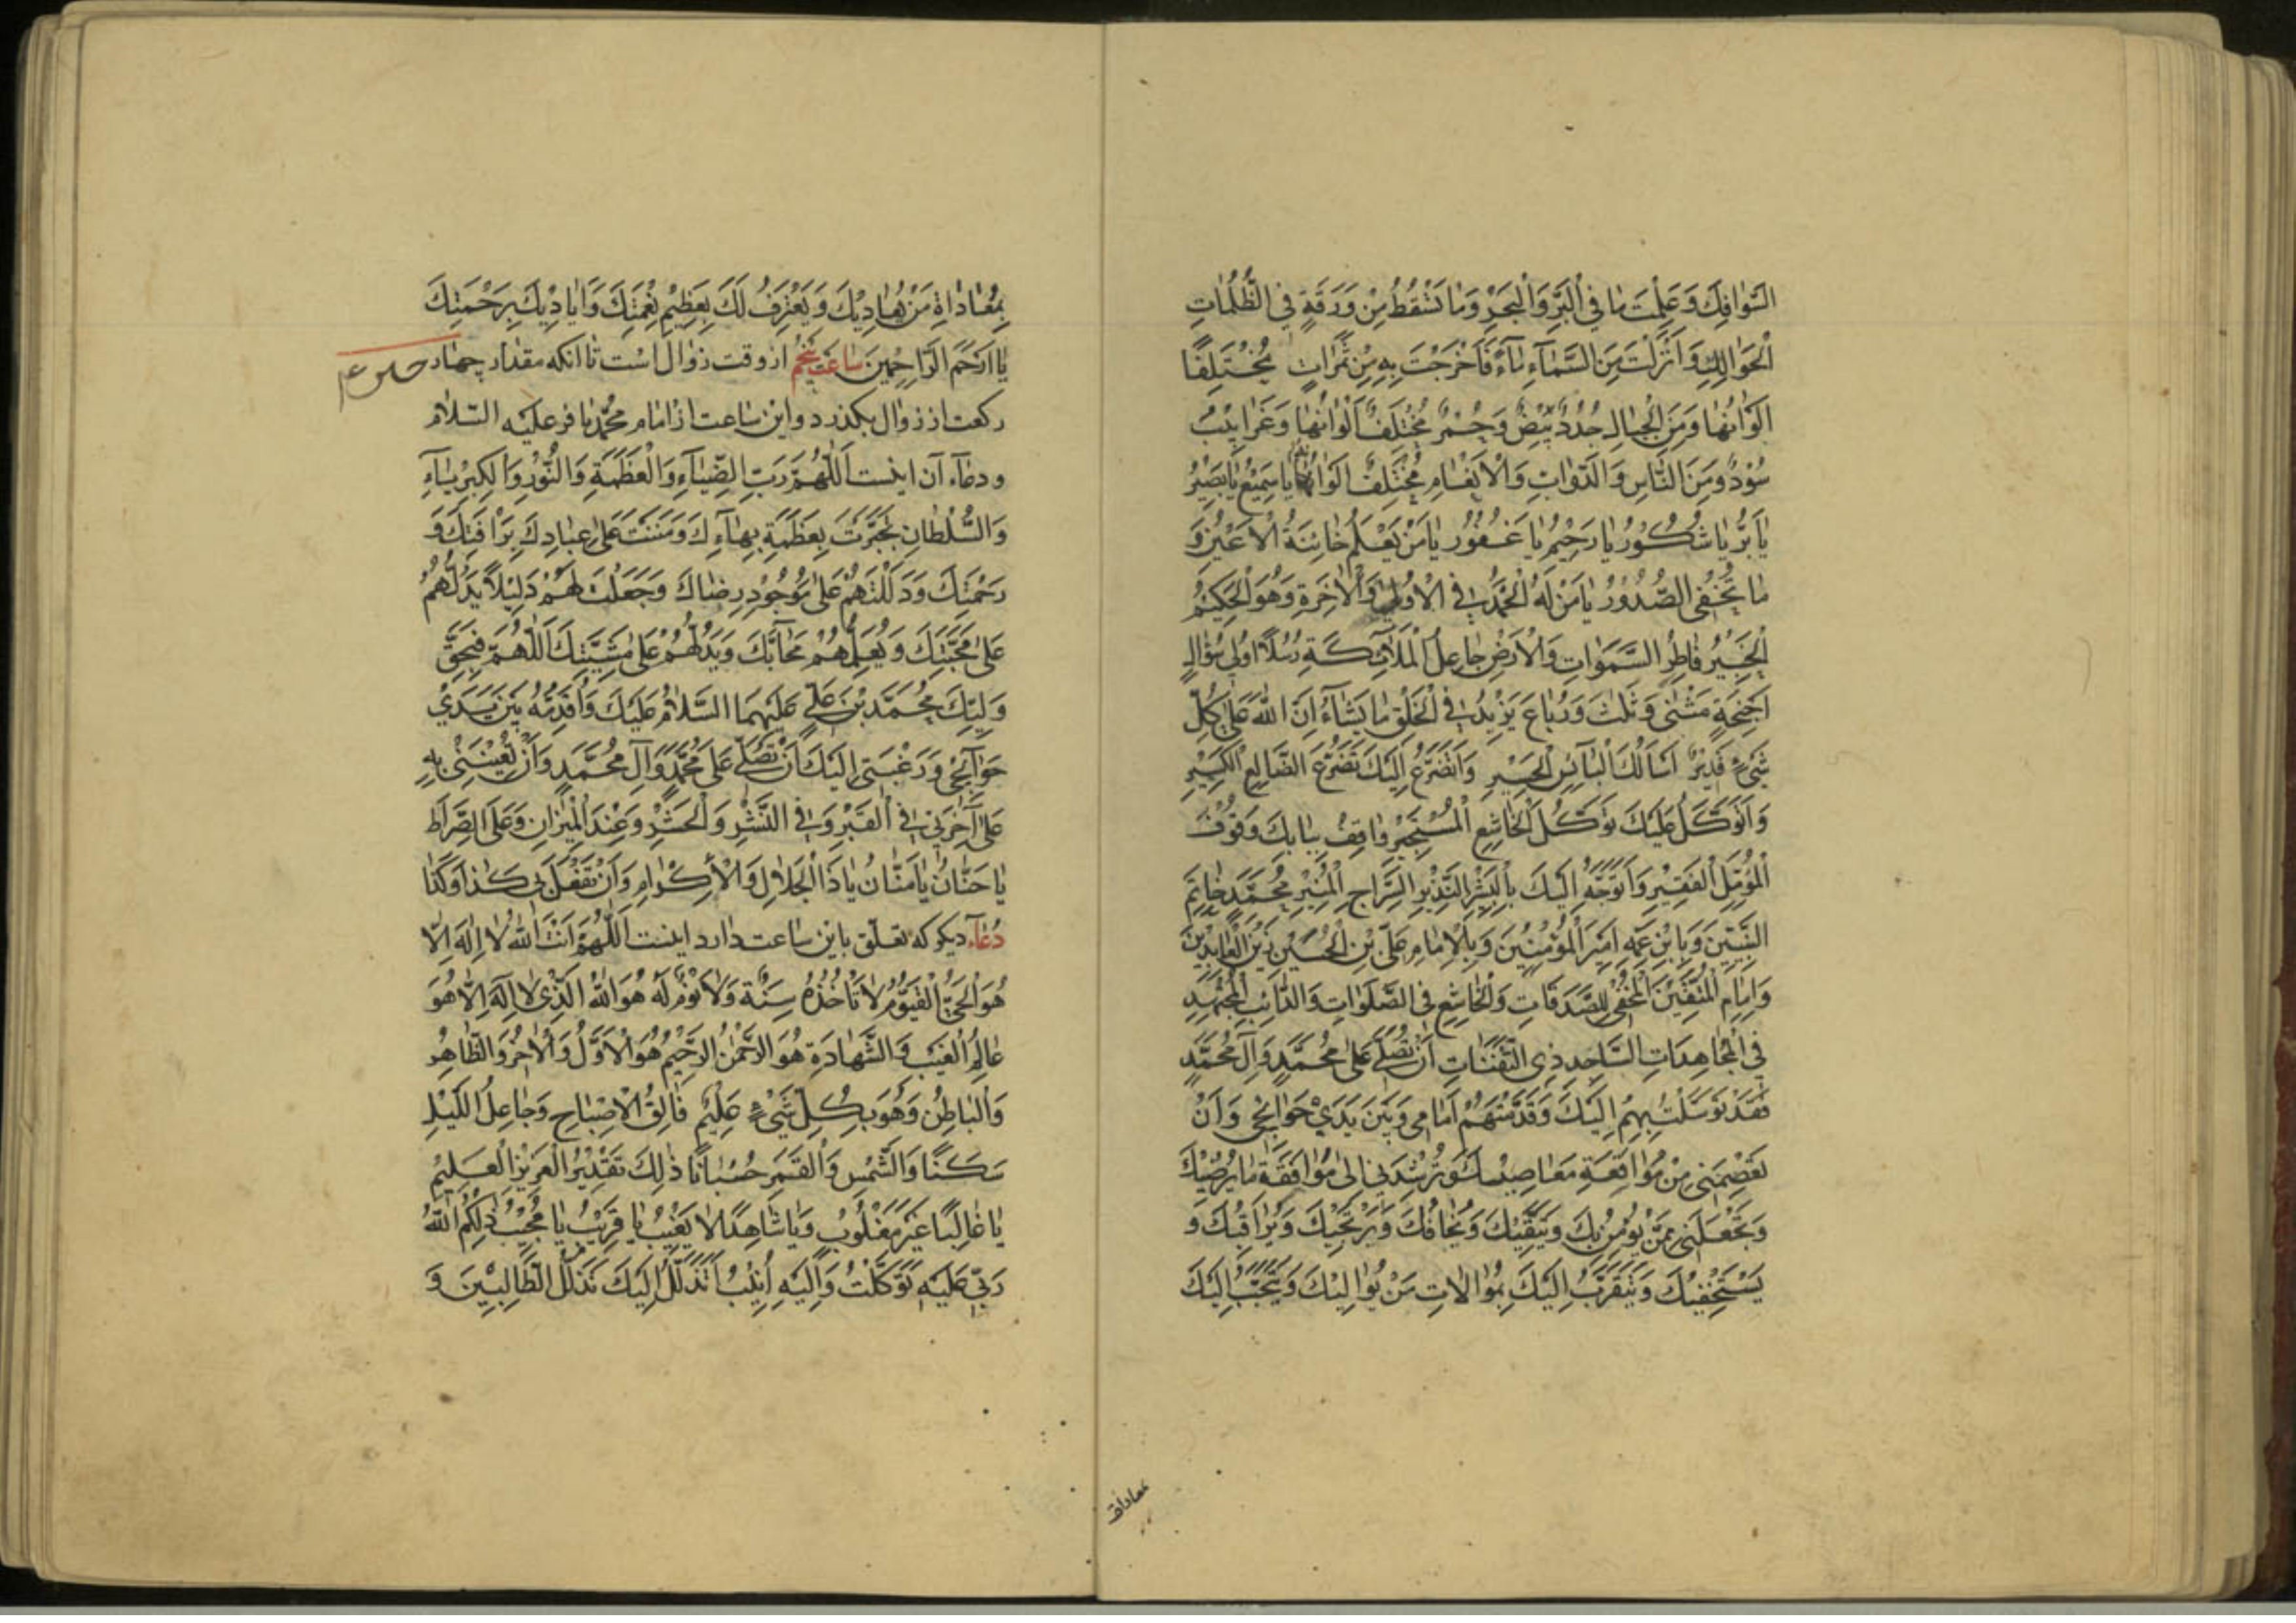 السَّوَافِكِ وَعَلِمْتَ مَا فِي الْبَرِّ وَالْبَحْرِ وَمَا تَسْقُطُ مِنْ وَرَقَةٍ فِي الظُّلُمَاتِ
الْحَوَالِكِ وَاَنْزَلْتَ مِنَ السَّمَاءِ مَاءً فَاَخْرَجْتَ بِهِ مِنْ ثَمَرَاتٍ مُخْتَلِفًا
اَلْوَانُهَا وَمِنَ الْجِبَالِ جُدَدٌ بِيْضٌ وَحُمْرٌ مُخْتَلِفٌ اَلْوَانُهَا وَغَرَابِيْبُ
سُوْدٌ وَمِنَ النَّاسِ وَالدَّوَابِّ وَالْاَنْعَامِ مُخْتَلِفٌ اَلْوَانُهَا يَا سَمِيْعُ يَا بَصِيْرُ
يَا بَرُّ يَا شَكُوْرُ يَا رَحِيْمُ يَا غَفُوْرُ يَا مَنْ يَعْلَمُ خَائِنَةَ الْاَعْيُنِ وَ
مَا تُخْفِى الصُّدُوْرُ يَا مَنْ لَهُ الْحَمْدُ فِي الْاُوْلٰى وَالْاٰخِرَةِ وَهُوَ الْحَكِيْمُ
الْخَبِيْرُ فَاطِرِ السَّمَوَاتِ وَالْاَرْضِ جَاعِلِ الْمَلَآئِكَةِ رُسُلًا اُولٰى سُؤَالِ
اَجْنِحَةٍ مَثْنٰى وَثُلٰثَ وَرُبَاعَ يَزِيْدُ فِي الْخَلْقِ مَا يَشَآءُ اِنَّ اللّٰهَ عَلٰى كُلِّ
شَيْءٍ قَدِيْرٌ اَسْاَلُكَ الْبَآئِسِ الْحَسِيْرِ وَاَتَضَرَّعُ اِلَيْكَ تَضَرُّعَ الضَّالِعِ الْكَسِيْرِ
وَاَتَوَكَّلُ عَلَيْكَ تَوَكُّلَ الْخَاشِعِ الْمُسْتَجِيْرِ وَاقِفُ بِبَابِكَ وُقُوْفَ
الْمُؤَمِّلِ الْفَقِيْرِ وَاَتَوَجَّهُ اِلَيْكَ بِالْبَشِيْرِ النَّذِيْرِ السِّرَاجِ الْمُنِيْرِ مُحَمَّدٍ خَاتَمِ
النَّبِيِّيْنَ وَبِابْنِ عَمِّهِ اَمِيْرِ الْمُؤْمِنِيْنَ وَبِالْاِمَامِ عَلِيِّ بْنِ الْحُسَيْنِ زَيْنِ الْعَابِدِيْنَ
وَاِمَامِ الْمُتَّقِيْنَ الْمُخْفِي لِلصَّدَقَاتِ وَالْخَاشِعِ فِي الصَّلَوَاتِ وَالدَّائِبِ الْمُجْتَهِدِ
فِي الْمُجَاهِدَاتِ السَّاجِدِ ذِى الثَّفَنَاتِ اَنْ تُصَلِّيَ عَلٰى مُحَمَّدٍ وَآلِ مُحَمَّدٍ
فَقَدْ تَوَسَّلْتُ بِهِمْ اِلَيْكَ وَقَدَّمْتُهُمْ اَمَامِي وَبَيْنَ يَدَيْ حَوَآئِجِي وَاَنْ
تَعْصِمَنِي مِنْ مُوَاقَعَةِ مَعَاصِيْكَ وَتُرْشِدَنِي اِلٰى مُوَافَقَةِ مَا يُرْضِيْكَ
وَتَجْعَلَنِي مِمَّنْ يُؤْمِنُ بِكَ وَيَتَّقِيْكَ وَيَخَافُكَ وَيَرْتَجِيْكَ وَيُرَاقِبُكَ وَ
يَسْتَخْفِيْكَ وَيَتَقَرَّبُ اِلَيْكَ بِمُوَالَاتِ مَنْ يُوَالِيْكَ وَيَتَحَبَّبُ اِلَيْكَ
معاداة
بِمُعَادَاةِ مَنْ يُعَادِيْكَ وَيَعْتَرِفُ لَكَ بِعَظِيْمِ نِعْمَتِكَ وَاَيَادِيْكَ بِرَحْمَتِكَ
يَا اَرْحَمَ الرَّاحِمِيْنَ سَاعَتِ پَنْجُم از وقت زوال است تا انكه مقدار چهار
ركعت از زوال بكذرد واين ساعت از امام محمّد باقر عليه السّلام
ودعآء آن اينست اَللّٰهُمَّ رَبَّ الضِّيَآءِ وَالْعَظَمَةِ وَالنُّوْرِ وَالْكِبْرِيَآءِ
وَالسُّلْطَانِ تَجَبَّرْتَ بِعَظَمَةِ بِهَآءِكَ وَمَنَنْتَ عَلٰى عِبَادِكَ بِرَاْفَتِكَ وَ
رَحْمَتِكَ وَدَلَلْتَهُمْ عَلٰى مَوْجُوْدِ رِضَاكَ وَجَعَلْتَ لَهُمْ دَلِيْلًا يَدُلُّهُمْ
عَلٰى مَحَبَّتِكَ وَيُعَلِّمُهُمْ مَحَآبَّكَ وَيَدُلُّهُمْ عَلٰى مَشِيَّتِكَ اَللّٰهُمَّ فَبِحَقِّ
وَلِيِّكَ مُحَمَّدِ بْنِ عَلِيٍّ عَلَيْهِمَا السَّلَامُ عَلَيْكَ وَاُقَدِّمُهُ بَيْنَ يَدَيْ
حَوَآئِجِي وَرَغْبَتِي اِلَيْكَ اَنْ تُصَلِّيَ عَلٰى مُحَمَّدٍ وَآلِ مُحَمَّدٍ وَاَنْ تُعِيْنَنِي بِهِ
عَلٰى آخِرَتِي فِي الْقَبْرِ وَفِي النَّشْرِ وَالْحَشْرِ وَعِنْدَ الْمِيْزَانِ وَعَلَى الصِّرَاطِ
يَا حَنَّانُ يَا مَنَّانُ يَا ذَا الْجَلَالِ وَالْاِكْرَامِ وَاَنْ تَفْعَلَ بِي كَذَا وَكَذَا
دُعَآء ديكر كه تعلّق باين ساعت دارد اينست اَللّٰهُمَّ اَنْتَ اللّٰهُ لَا اِلٰهَ اِلَّا
هُوَ الْحَيُّ الْقَيُّوْمُ لَا تَاْخُذُهُ سِنَةٌ وَلَا نَوْمٌ لَهُ هُوَ اللّٰهُ الَّذِي لَا اِلٰهَ اِلَّا هُوَ
عَالِمُ الْغَيْبِ وَالشَّهَادَةِ هُوَ الرَّحْمٰنُ الرَّحِيْمُ هُوَ الْاَوَّلُ وَالْاٰخِرُ وَالظَّاهِرُ
وَالْبَاطِنُ وَهُوَ بِكُلِّ شَيْءٍ عَلِيْمٌ فَالِقُ الْاِصْبَاحِ وَجَاعِلُ اللَّيْلِ
سَكَنًا وَالشَّمْسِ وَالْقَمَرِ حُسْبَانًا ذٰلِكَ تَقْدِيْرُ الْعَزِيْزِ الْعَلِيْمِ
يَا غَالِبًا غَيْرَ مَغْلُوْبٍ وَيَا شَاهِدًا لَا يَغِيْبُ يَا قَرِيْبُ يَا مُجِيْبُ ذٰلِكُمُ اللّٰهُ
رَبِّي عَلَيْهِ تَوَكَّلْتُ وَاِلَيْهِ اُنِيْبُ اَتَذَلَّلُ اِلَيْكَ تَذَلُّلَ الطَّالِبِيْنَ وَ